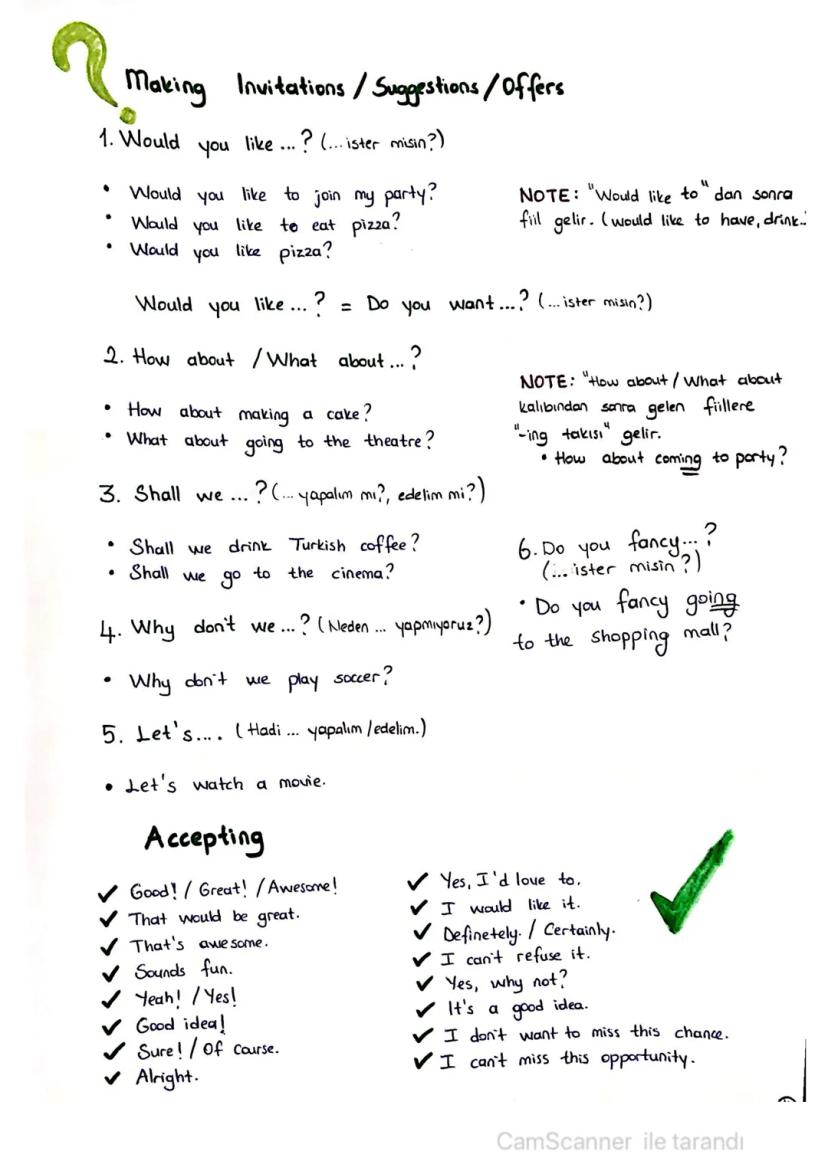 Making Invitations / Suggestions / Offers
1. Would you like ...? (... ister misin?)
• Would you like to join my party?
• Would you like to eat pizza?
• Would you like pizza?
NOTE: "Would like to" dan sonra
fiil gelir. (would like to have, drink..
Would you like ...? = Do you want ...? (... ister misin?)
2. How about / What about ...?
• How about making a cake?
• What about going to the theatre?
NOTE: "How about / What about
kalıbından sonra gelen fiillere
"-ing takısı" gelir.
• How about coming to party?
3. Shall we ...? (... yapalım mı?, edelim mi?)
• Shall we drink Turkish coffee?
• Shall we go to the cinema?
4. Why don't we ...? (Neden ... yapmıyoruz?)
• Why don't we play soccer?
5. Let's .... (Hadi ... yapalım / edelim.)
• Let's watch a movie.
6. Do you fancy ...?
(... ister misin?)
• Do you fancy going
to the shopping mall?
Accepting
✓ Good! / Great! / Awesome!
✓ That would be great.
✓ That's awesome.
✓ Sounds fun.
✓ Yeah! / Yes!
✓ Good idea!
✓ Sure! / Of course.
✓ Alright.
✓ Yes, I'd love to.
✓ I would like it.
✓ Definetely. / Certainly.
✓ I can't refuse it.
✓ Yes, why not?
✓ It's a good idea.
✓ I don't want to miss this chance.
✓ I can't miss this opportunity.
CamScanner ile tarandı